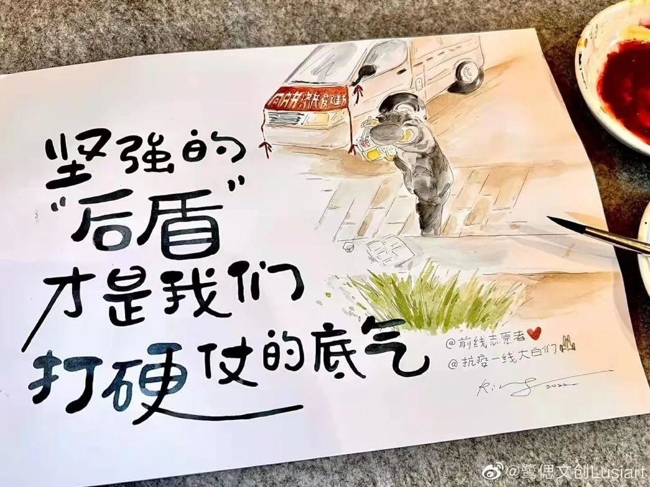 坚强的
“后盾”
才是我们
打硬仗的底气
@前线志愿者
@抗疫一线大白们
2022
@鹭偲文创Lusiart